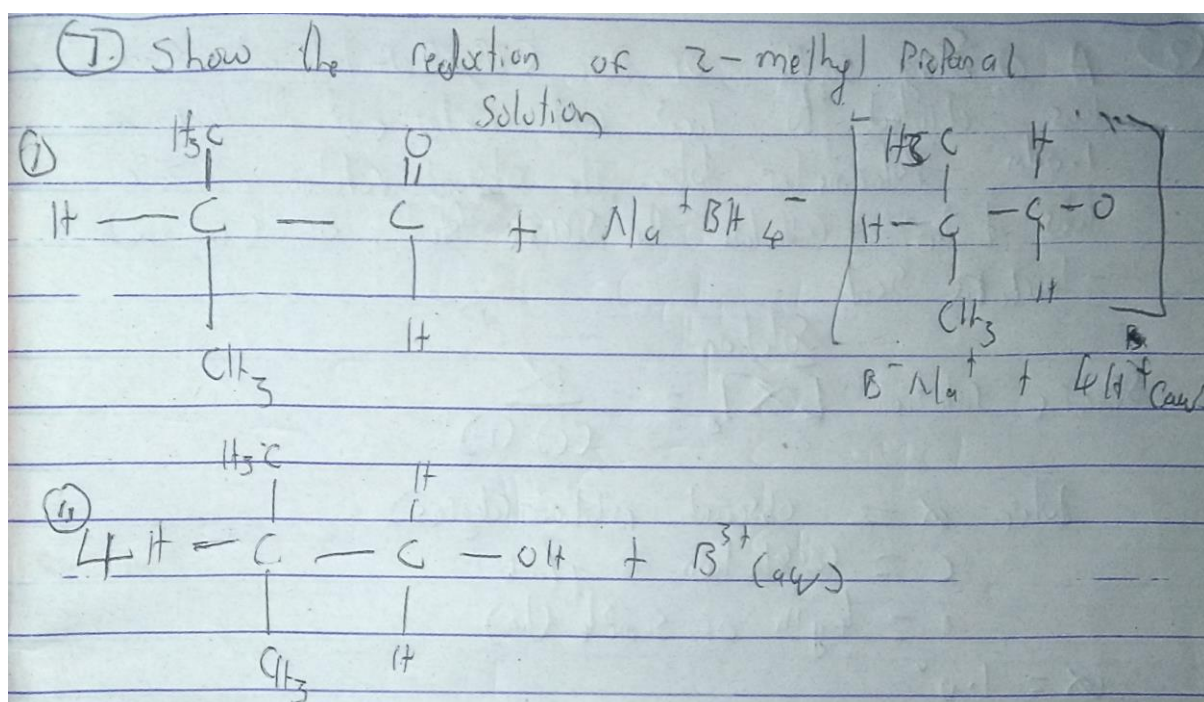 7. Show the reduction of 2-methyl Propanal
Solution
i
H3C O H3C H
H — C — C + Na+ BH4- H - C - C - O
CH3 H CH3 H
B- Na+ + 4H+(aq)
H3C H
ii
4 H - C - C - OH + B3+(aq)
CH3 H